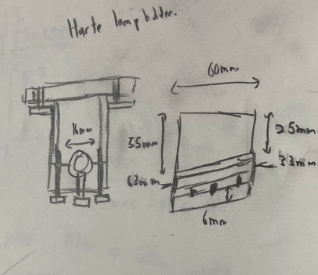 Harte lamp holder.
60mm
16mm
35mm
25mm
33mm
63mm
6mm